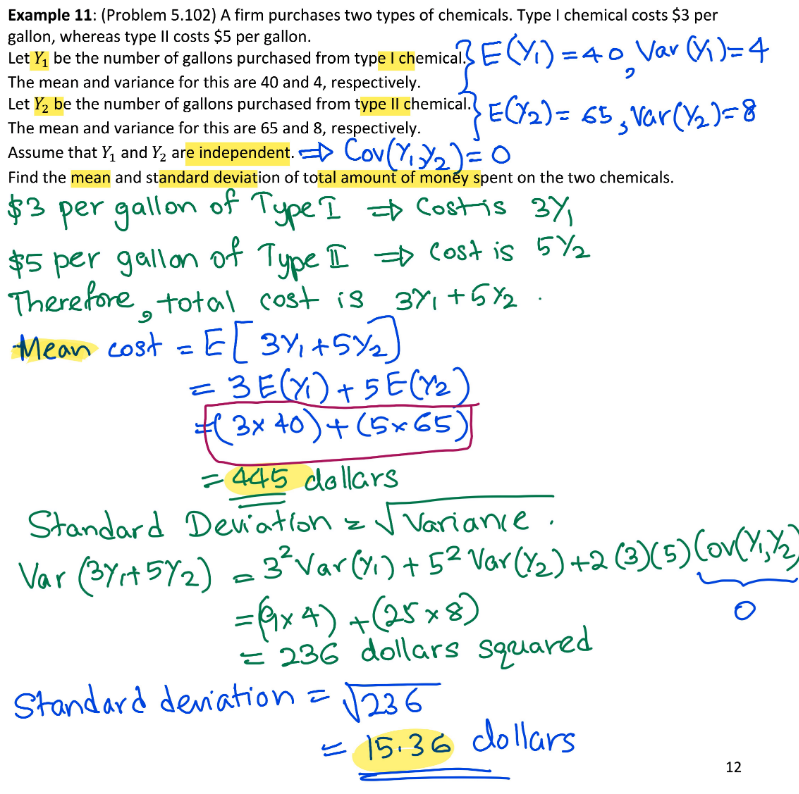 Example 11: (Problem 5.102) A firm purchases two types of chemicals. Type I chemical costs $3 per
gallon, whereas type II costs $5 per gallon.
Let Y₁ be the number of gallons purchased from type I chemical. } E(Y₁) = 40, Var(Y₁) = 4
The mean and variance for this are 40 and 4, respectively.
Let Y₂ be the number of gallons purchased from type II chemical. } E(Y₂) = 65, Var(Y₂) = 8
The mean and variance for this are 65 and 8, respectively.
Assume that Y₁ and Y₂ are independent. ⇒ Cov(Y₁,Y₂) = 0
Find the mean and standard deviation of total amount of money spent on the two chemicals.
$3 per gallon of Type I ⇒ Cost is 3Y₁
$5 per gallon of Type II ⇒ Cost is 5Y₂
Therefore, total cost is 3Y₁ + 5Y₂ .
Mean cost = E[3Y₁ + 5Y₂]
= 3E(Y₁) + 5E(Y₂)
= (3×40) + (5×65)
= 445 dollars
Standard Deviation = √Variance .
Var(3Y₁+5Y₂) = 3² Var(Y₁) + 5² Var(Y₂) + 2(3)(5) Cov(Y₁,Y₂)
0
= (9×4) + (25×8)
= 236 dollars squared
Standard deviation = √236
= 15.36 dollars
12